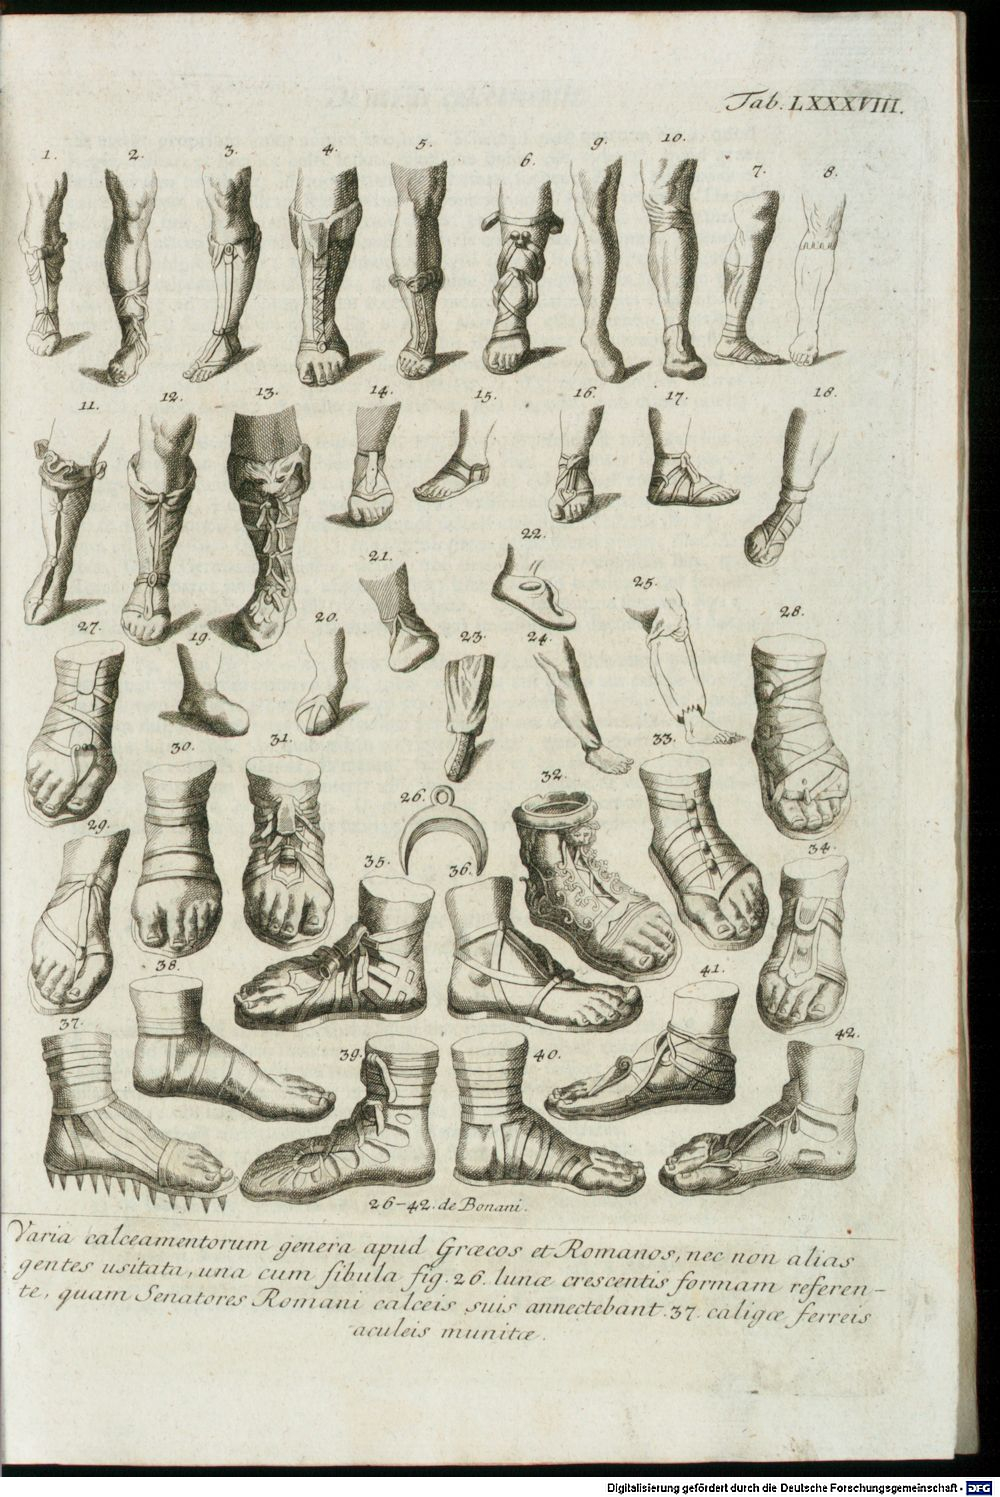 Tab. LXXXVIII.
1. 2. 3. 4. 5. 6. 9. 10. 7. 8.
11. 12. 13. 14. 15. 16. 17. 18.
21. 22. 25.
27. 19. 20. 23. 24. 28.
30. 31. 33.
29. 26. 32. 34.
35. 36.
38. 41.
37. 39. 40. 42.
26–42. de Bonani.
Varia calceamentorum genera apud Græcos et Romanos, nec non alias
gentes usitata, una cum fibula fig. 26. lunæ crescentis formam referen–
te, quam Senatores Romani calceis suis annectebant. 37. caligæ ferreis
aculeis munitæ.
Digitalisierung gefördert durch die Deutsche Forschungsgemeinschaft - DFG